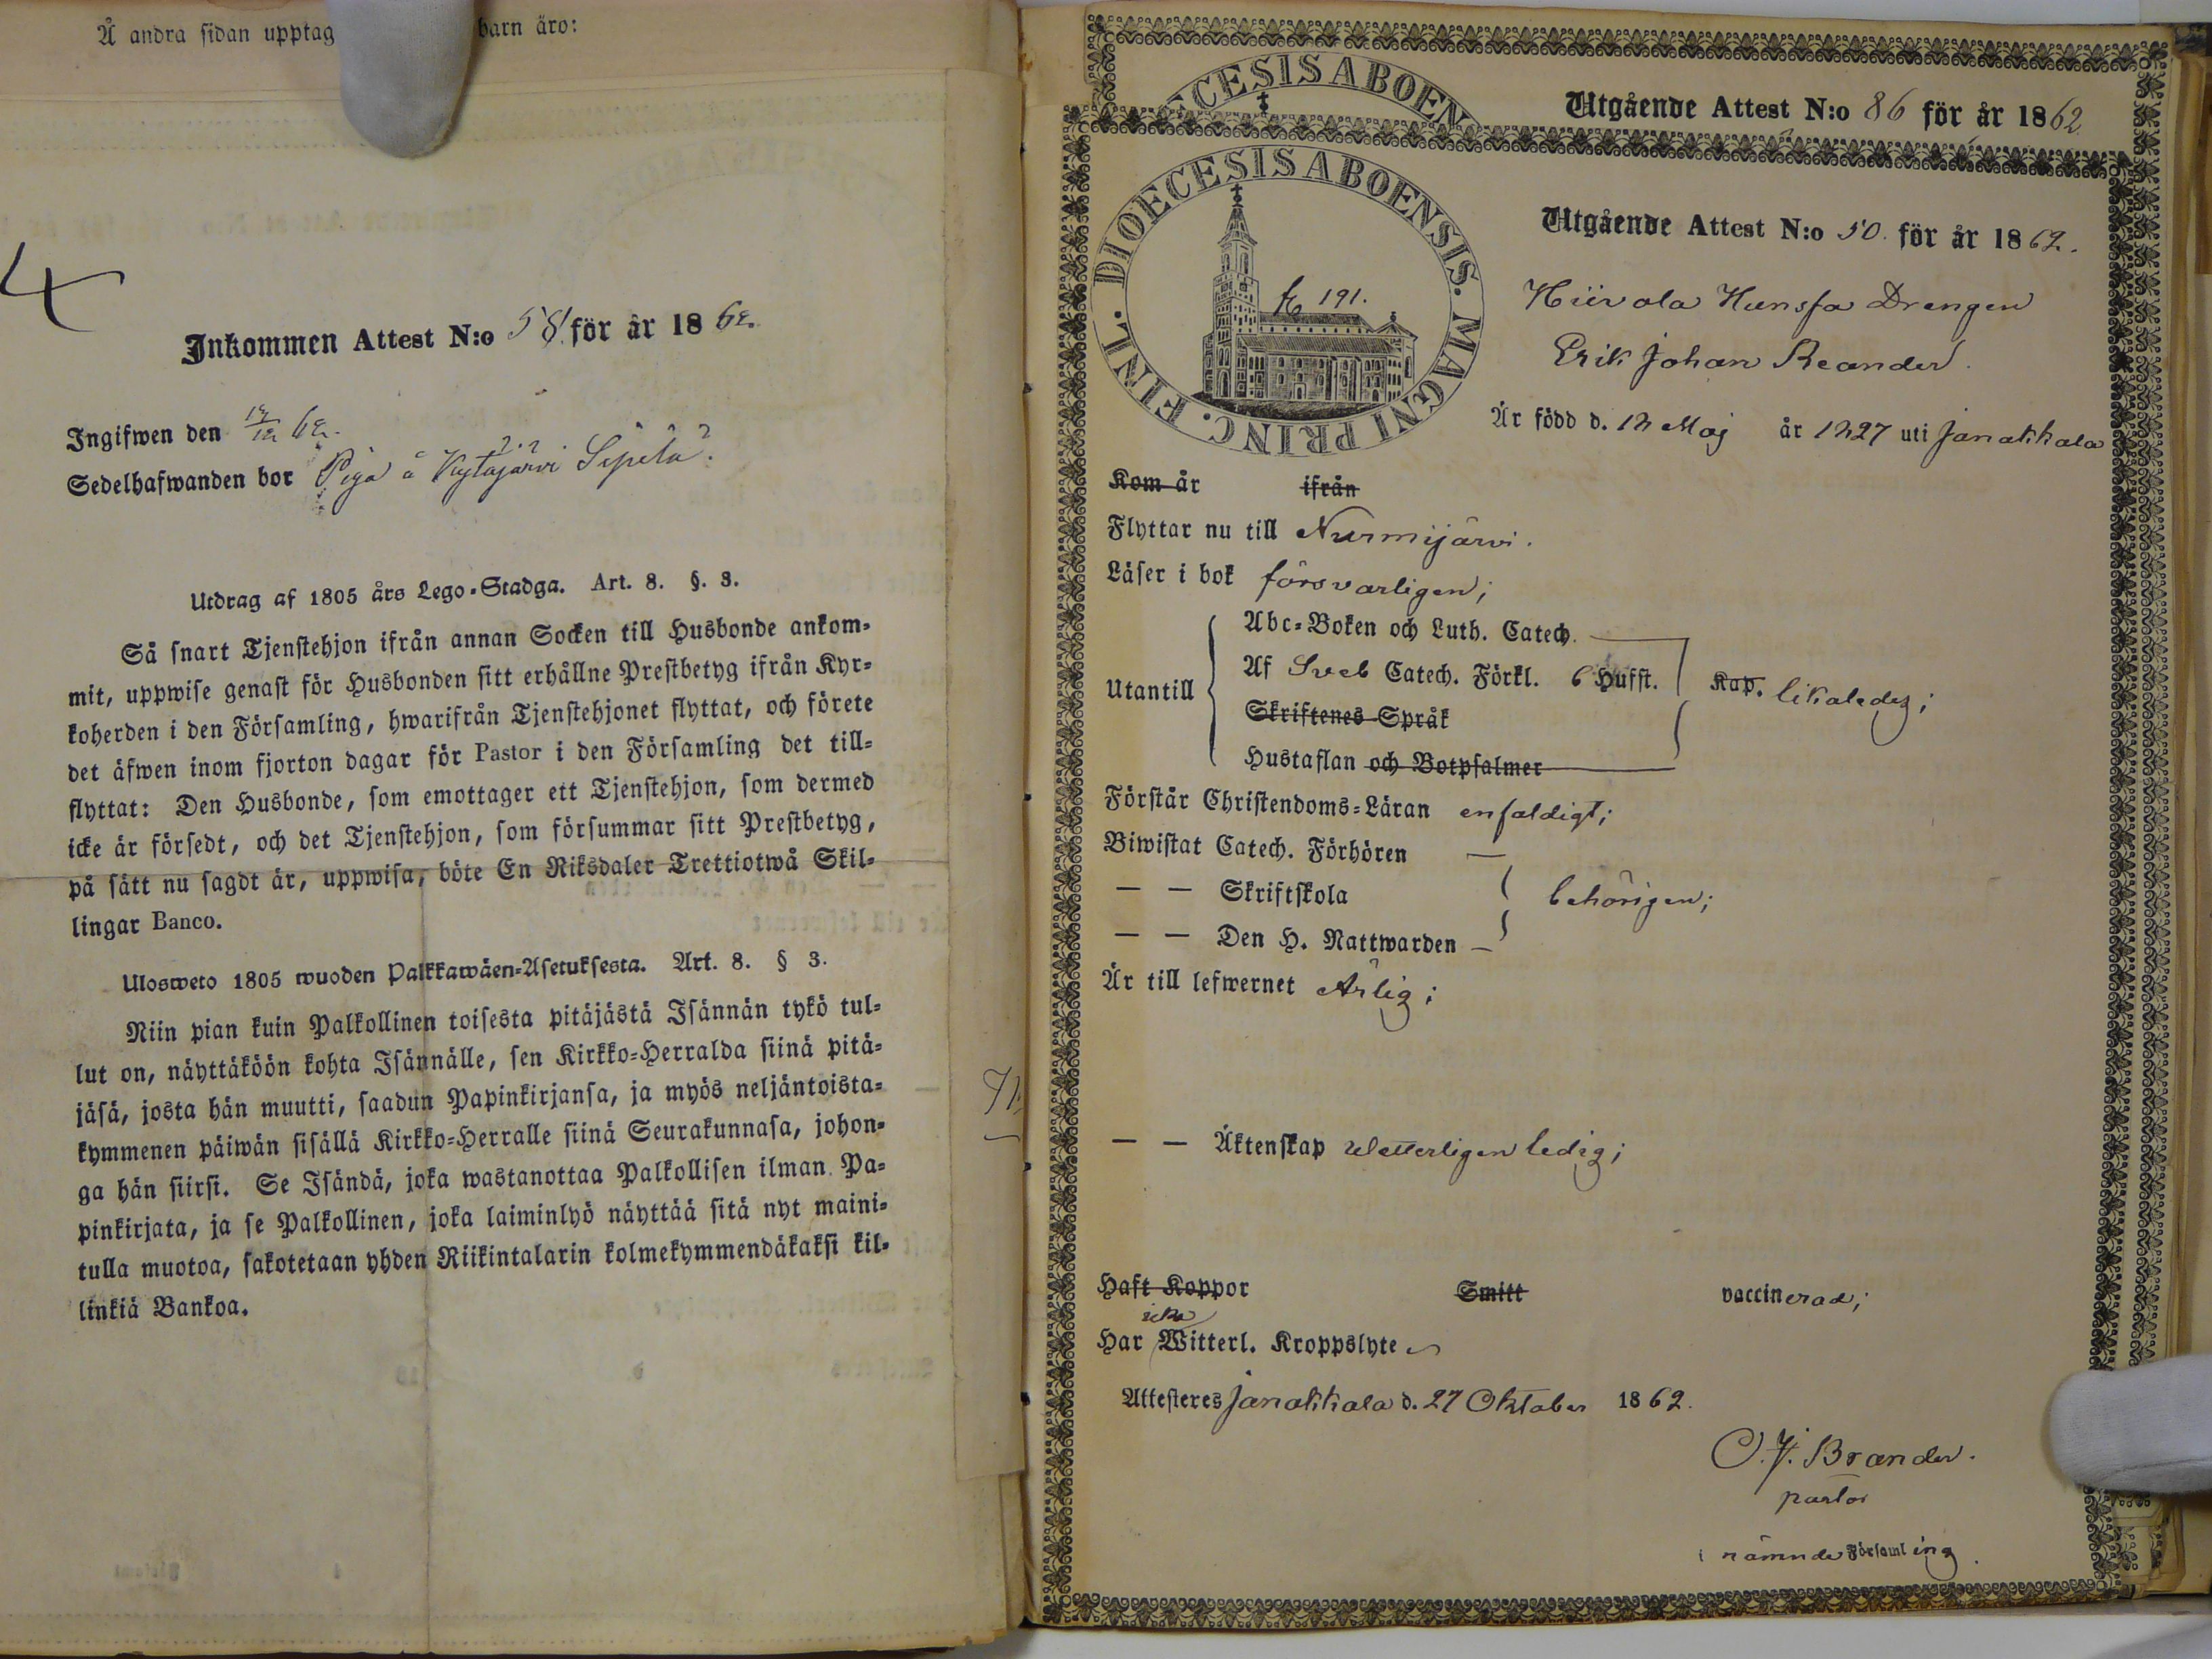 Å andra sidan upptag barn äro:
4
Inkommen Attest N:o 58. för år 1862.
Ingifwen den 62.
Sedelhafwanden bor Piga å Kytäjärvi Sipilä?
Utdrag af 1805 års Lego-Stadga. Art. 8. §. 3.
Så snart Tjenstehjon ifrån annan Socken till Husbonde ankom-
mit, uppwise genast för Husbonden sitt erhållne Prestbetyg ifrån Kyr-
koherden i den Församling, hwarifrån Tjenstehjonet flyttat, och förete
det äfwen inom fjorton dagar för Pastor i den Församling det till-
flyttat: Den Husbonde, som emottager ett Tjenstehjon, som dermed
icke är försedt, och det Tjenstehjon, som försummar sitt Prestbetyg,
på sätt nu sagdt är, uppwisa, böte En Riksdaler Trettiotwå Skil-
lingar Banco.
Ulosweto 1805 wuoden Palkkawäen-Asetuksesta. Art. 8. § 3.
Niin pian kuin Palkollinen toisesta pitäjästä Isännän tykö tul-
lut on, näyttäköön kohta Isännälle, sen Kirkko-Herralda siinä pitä-
jäsä, josta hän muutti, saadun Papinkirjansa, ja myös neljäntoista-
kymmenen päiwän sisällä Kirkko-Herralle siinä Seurakunnasa, johon-
ga hän siirsi. Se Isändä, joka wastanottaa Palkollisen ilman Pa-
pinkirjata, ja se Palkollinen, joka laiminlyö näyttää sitä nyt maini-
tulla muotoa, sakotetaan yhden Riikintalarin kolmekymmendäkaksi kil-
linkiä Bankoa.
CESIS ABOEN
Utgående Attest N:o 86 för år 1862
DIOECESIS ABOENSIS. MAGNI PRINC. FINL.
191.
Utgående Attest N:o 50. för år 1862.
Hiivola Hunsfa Drengen
Erik Johan Reander.
Är född d. 12 Maj år 1827 uti Janakkala
Kom år ifrån
Flyttar nu till Nurmijärvi.
Läser i bok försvarligen;
Utantill
Abc-Boken och Luth. Catech.
Af Sveb Catech. Förkl. 6 Hufst.
Skriftenes Språk
Hustaflan och Botpsalmer
Kap. likaledes;
Förstår Christendoms-Läran enfaldigt;
Biwistat Catech. Förhören
— — Skriftskola
— — Den H. Nattwarden
behörigen;
Är till lefwernet Ärlig;
— — Äktenskap Veterligen ledig;
Haft Koppor Smitt vaccinerad;
icke
Har Witterl. Kroppslyte
Attesteres Janakkala d. 27 Oktober 1862.
O. J. Brander.
pastor
i nämnde Församling.